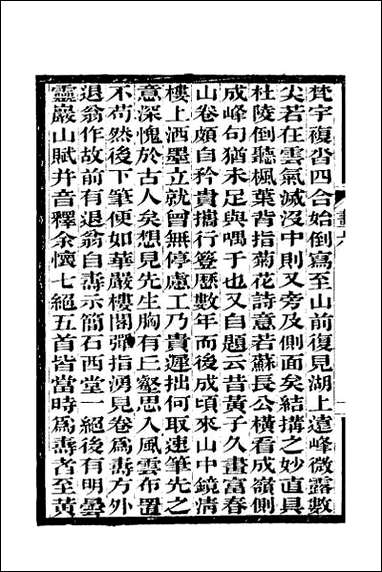 梵宇複沓四合始倒寫至山前復見湖上遠峰微露數
尖若在雲氣滅沒中則又旁及側面矣結搆之妙直具
杜陵倒聽楓葉背指菊花詩意若蘇長公橫看成嶺側
成峰句猶未足與喁于也又自題云昔黃子久畫富春
山卷頗自矜貴攜行篋歷數年而後成頃來山中鏡淸
樓上洒墨立就曾無停慮工乃貴遲拙何取速筆先之
意深愧於古人矣想見先生胸有丘壑思入風雲布置
不苟然後下筆便如華嚴樓閣彈指湧見卷爲壽方外
退翁作故前有退翁自壽示簡石西堂一絕後有明曇
靈巖山賦幷音釋余懷七絕五首皆當時爲壽者至黃